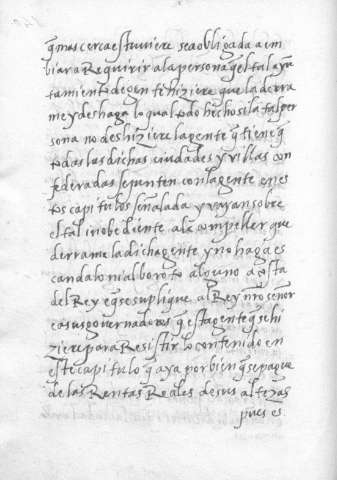 q̃ mas cerca estuviere sea obligada a em
biar a Requirir a la persona q̃ el tal ayu
tamiento de gente hiziere que la derra
me y deshaga lo qual todo hecho si la tal per
sona no deshiziere la gente q̃ tiene q̃
todas las dichas ciudades y villas con
federadas se junten con la gente en es
tos capitulos señalada y vayan sobre
el tal inobediente a la compeller que
derrame la dicha gente y no haga es
candalo ni alboroto alguno a costa
del Rey e q̃ se suplique al Rey nr̃o señor
e a sus governadores q̃ esta gente q̃ se hi
ziere para Resistir lo contenido en
este capitulo q̃ aya por bien q̃ se pague
de las Rentas Reales de sus altezas
pues es